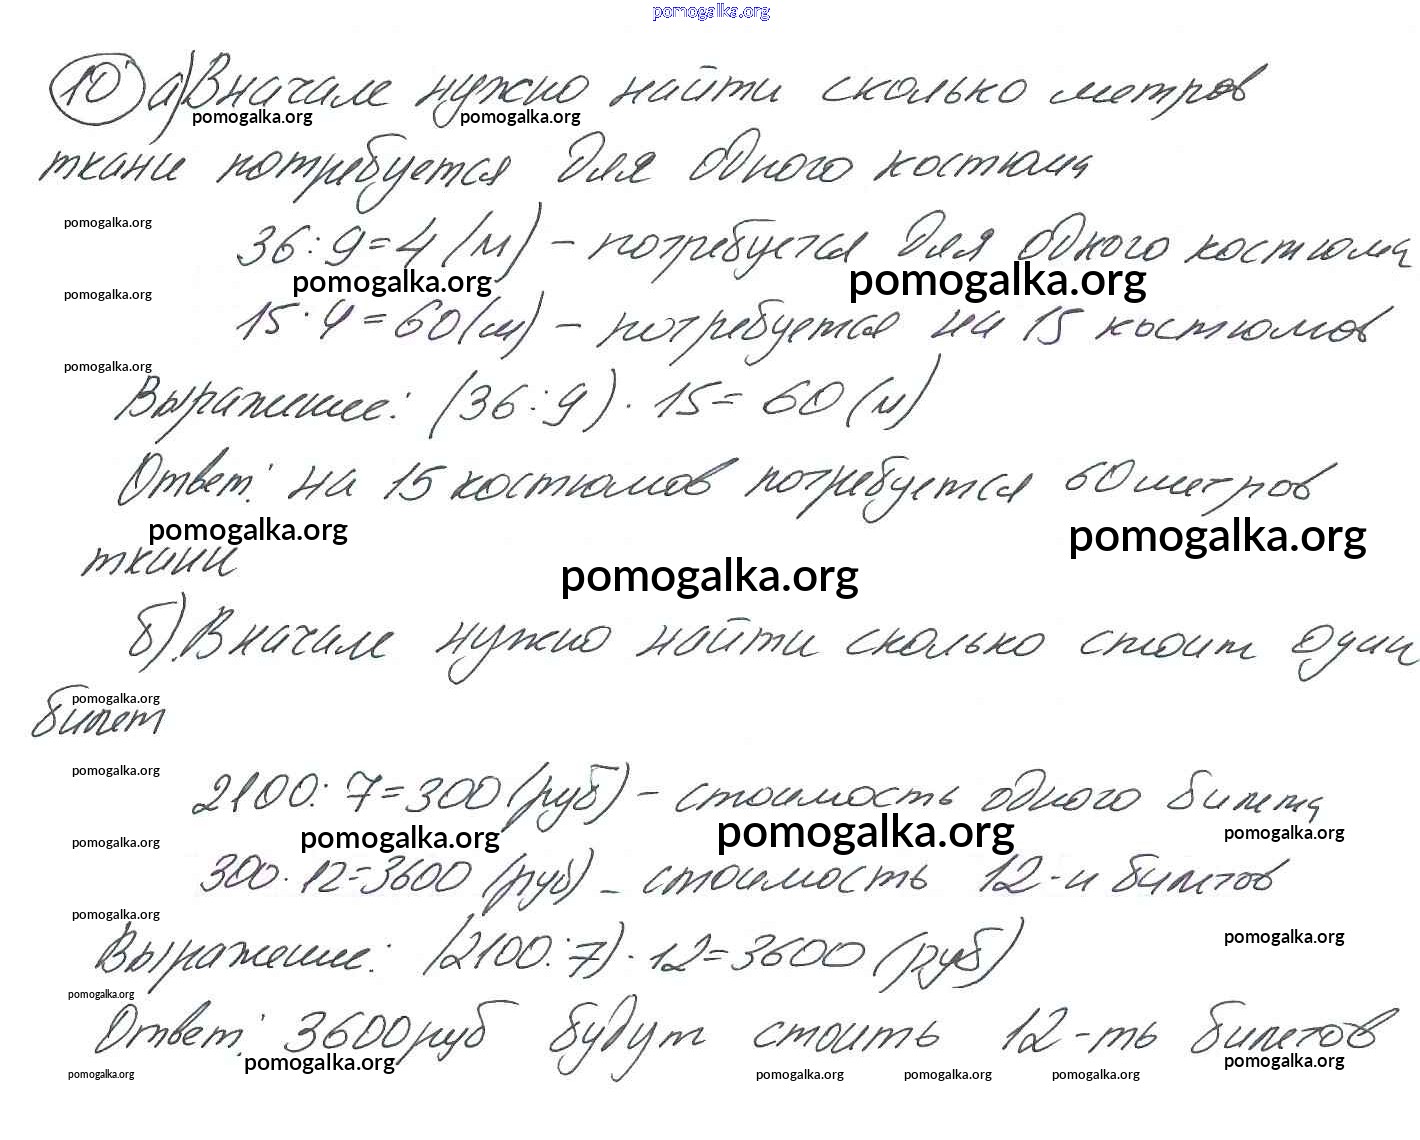 pomogalka.org
10 а) Вначале нужно найти сколько метров
pomogalka.org pomogalka.org
ткани потребуется для одного костюма
pomogalka.org
36:9=4 (м) – потребуется для одного костюма
pomogalka.org pomogalka.org
pomogalka.org
15·4=60(м) – потребуется на 15 костюмов
pomogalka.org
Выражение: (36:9)·15=60(м)
Ответ: на 15 костюмов потребуется 60 метров
pomogalka.org pomogalka.org
ткани
pomogalka.org
б) Вначале нужно найти сколько стоит один
pomogalka.org
билет
pomogalka.org
2100:7=300(руб) – стоимость одного билета
pomogalka.org pomogalka.org pomogalka.org
pomogalka.org
300·12=3600 (руб) – стоимость 12-и билетов
pomogalka.org
pomogalka.org
Выражение: (2100:7)·12=3600 (руб)
pomogalka.org
Ответ: 3600руб будут стоить 12-ть билетов
pomogalka.org pomogalka.org
pomogalka.org pomogalka.org pomogalka.org pomogalka.org